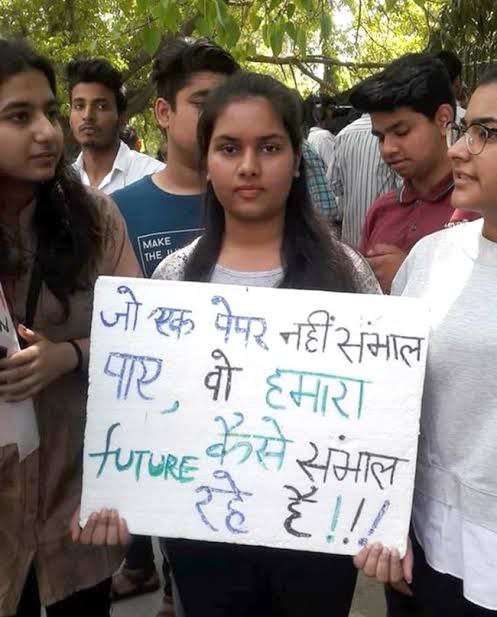 जो एक पेपर नहीं संभाल
पाए, वो हमारा
FUTURE कैसे संभाल
रहे हैं!!!
MAKE
THE